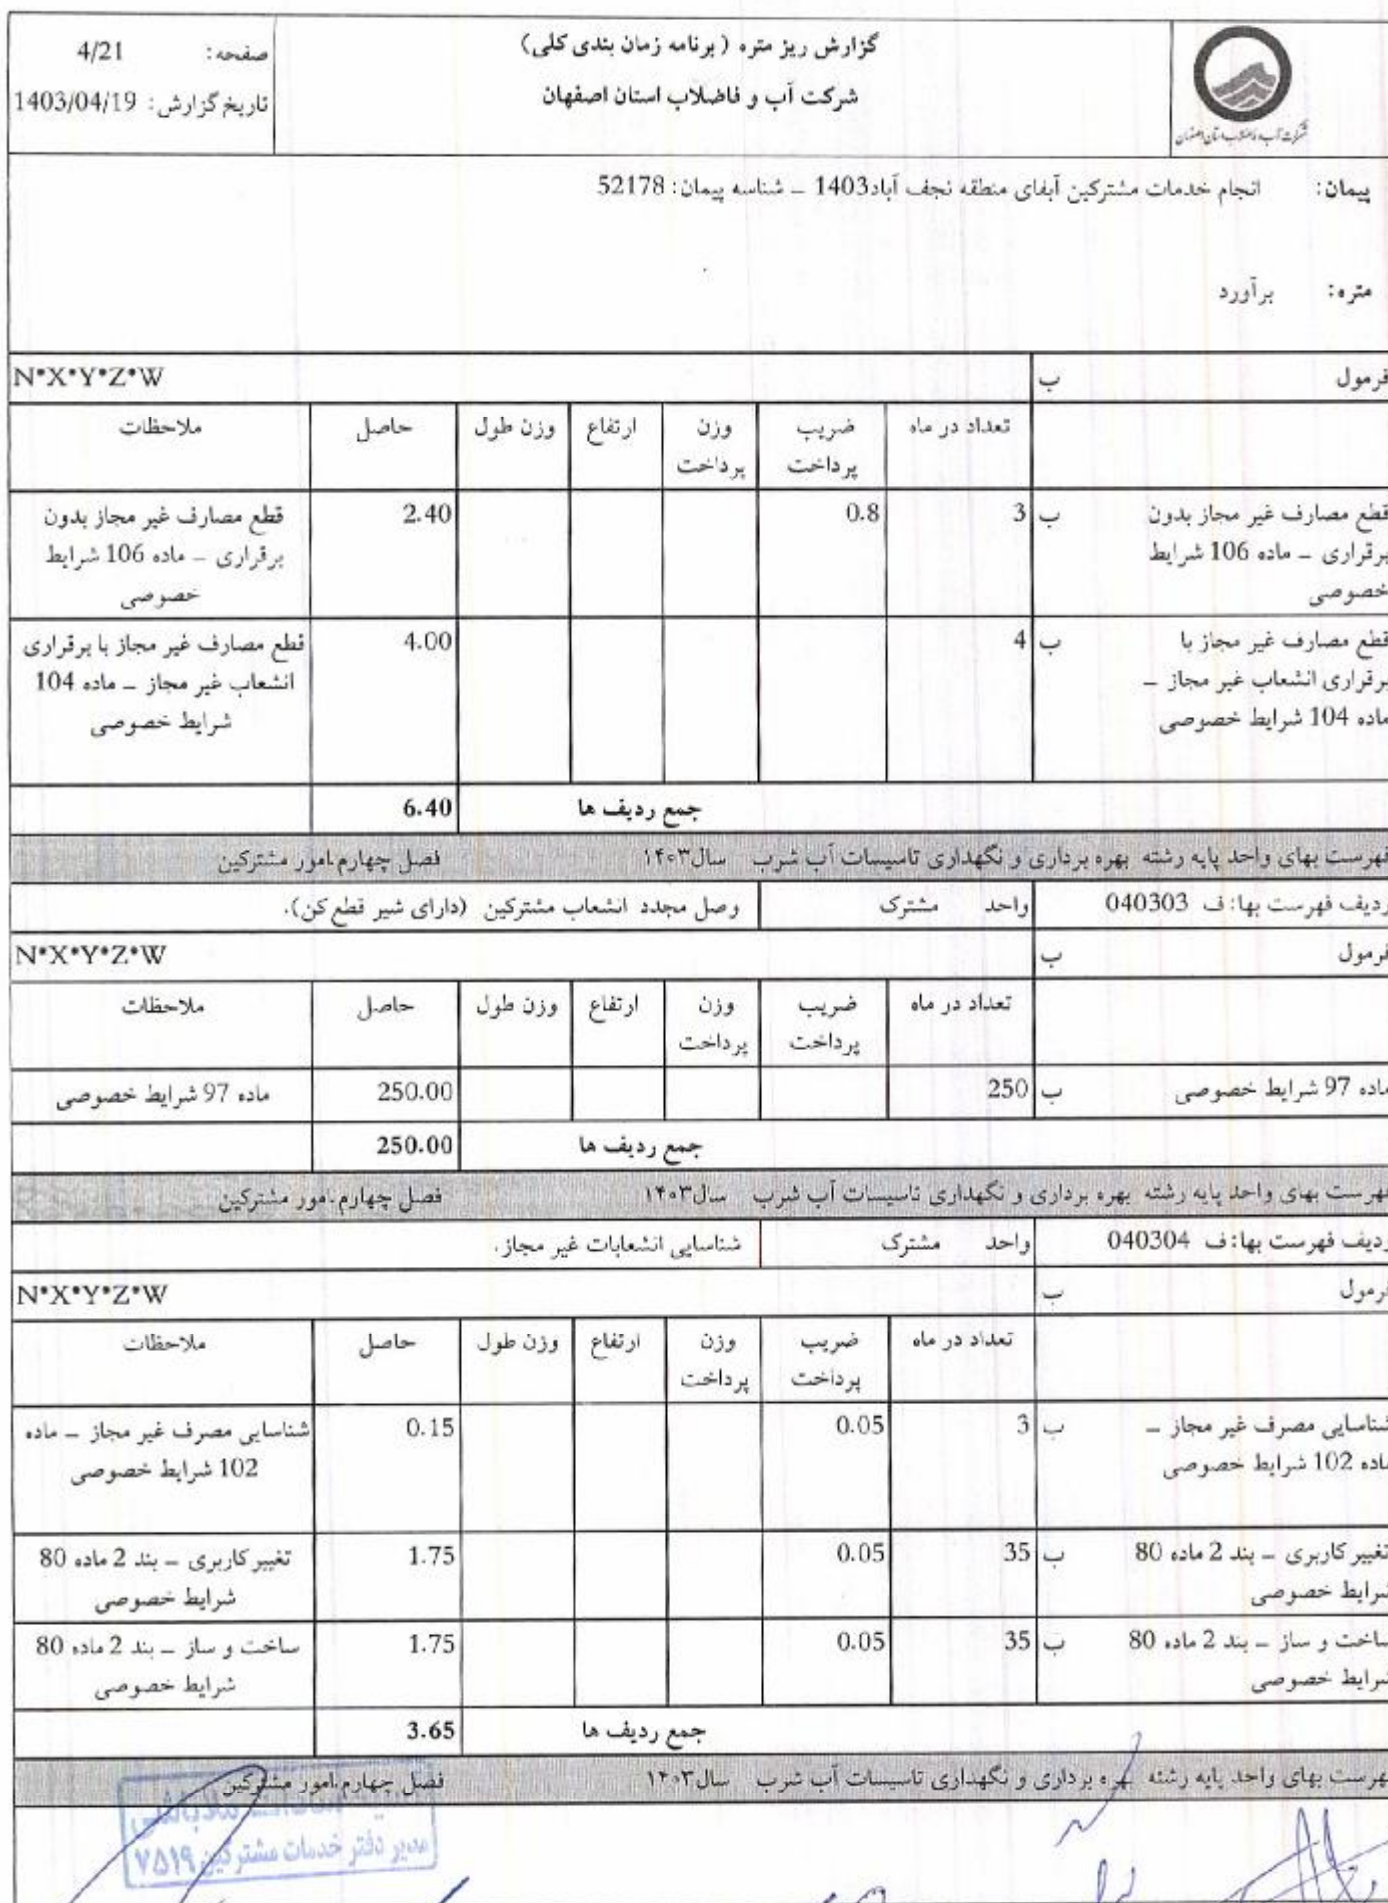 گزارش ریز متره (برنامه زمان بندی کلی)
شرکت آب و فاضلاب استان اصفهان
صفحه: 4/21
تاریخ گزارش: 1403/04/19
شرکت آب و فاضلاب استان اصفهان
پیمان: انجام خدمات مشترکین آبفای منطقه نجف آباد1403 – شناسه پیمان: 52178
متره: برآورد
فرمول ب N*X*Y*Z*W
تعداد در ماه ضریب پرداخت وزن پرداخت ارتفاع وزن طول حاصل ملاحظات
قطع مصارف غیر مجاز بدون برقراری – ماده 106 شرایط خصوصی ب 3 0.8 2.40 قطع مصارف غیر مجاز بدون برقراری – ماده 106 شرایط خصوصی
قطع مصارف غیر مجاز با برقراری انشعاب غیر مجاز – ماده 104 شرایط خصوصی ب 4 4.00 قطع مصارف غیر مجاز با برقراری انشعاب غیر مجاز – ماده 104 شرایط خصوصی
جمع ردیف ها 6.40
فهرست بهای واحد پایه رشته بهره برداری و نگهداری تاسیسات آب شرب سال۱۴۰۳ فصل چهارم.امور مشترکین
ردیف فهرست بها: ف 040303 واحد مشترک وصل مجدد انشعاب مشترکین (دارای شیر قطع کن).
فرمول ب N*X*Y*Z*W
تعداد در ماه ضریب پرداخت وزن پرداخت ارتفاع وزن طول حاصل ملاحظات
ماده 97 شرایط خصوصی ب 250 250.00 ماده 97 شرایط خصوصی
جمع ردیف ها 250.00
فهرست بهای واحد پایه رشته بهره برداری و نگهداری تاسیسات آب شرب سال۱۴۰۳ فصل چهارم.امور مشترکین
ردیف فهرست بها: ف 040304 واحد مشترک شناسایی انشعابات غیر مجاز.
فرمول ب N*X*Y*Z*W
تعداد در ماه ضریب پرداخت وزن پرداخت ارتفاع وزن طول حاصل ملاحظات
شناسایی مصرف غیر مجاز – ماده 102 شرایط خصوصی ب 3 0.05 0.15 شناسایی مصرف غیر مجاز – ماده 102 شرایط خصوصی
تغییر کاربری – بند 2 ماده 80 شرایط خصوصی ب 35 0.05 1.75 تغییر کاربری – بند 2 ماده 80 شرایط خصوصی
ساخت و ساز – بند 2 ماده 80 شرایط خصوصی ب 35 0.05 1.75 ساخت و ساز – بند 2 ماده 80 شرایط خصوصی
جمع ردیف ها 3.65
فهرست بهای واحد پایه رشته بهره برداری و نگهداری تاسیسات آب شرب سال۱۴۰۳ فصل چهارم.امور مشترکین
مدیر دفتر خدمات مشترکین ۷۵۱۹